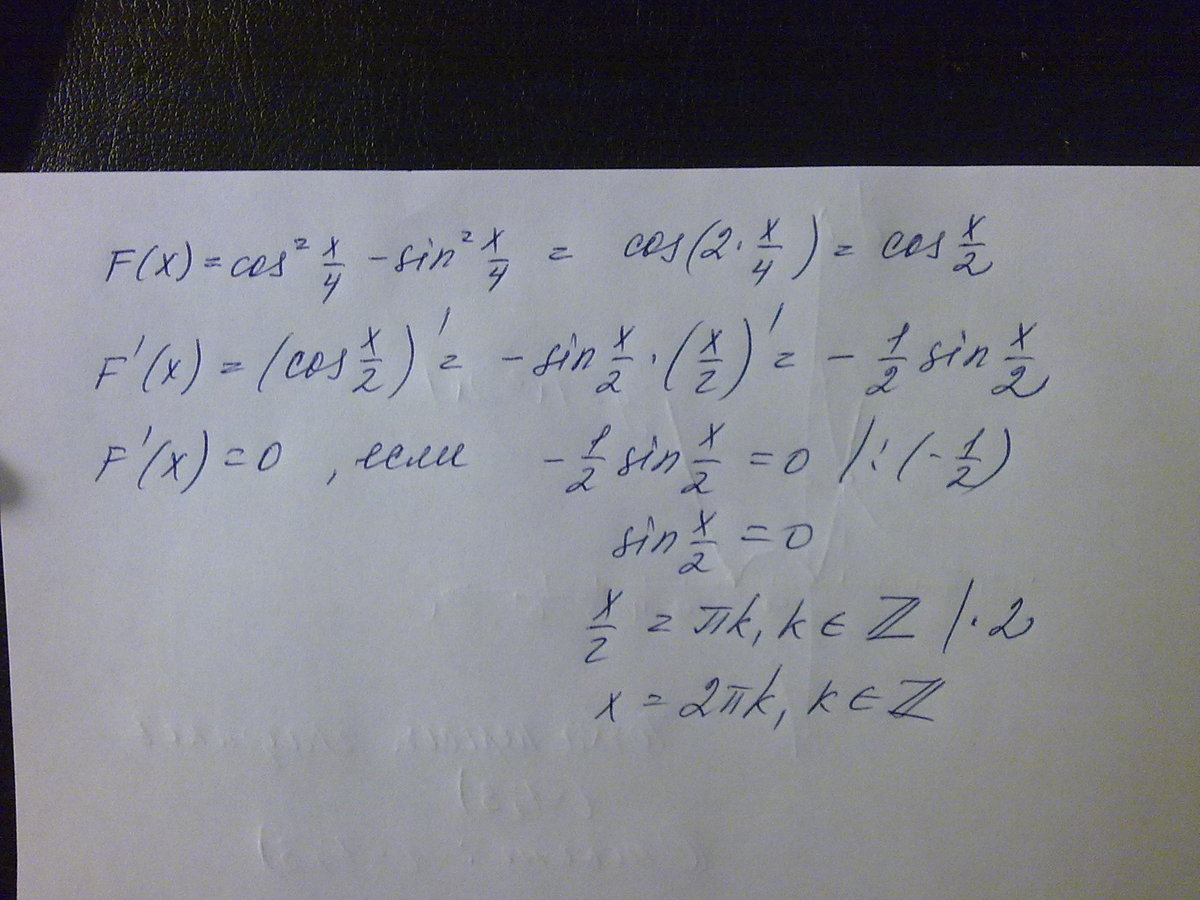 F(x) = cos² x/4 - sin² x/4 = cos(2 · x/4) = cos x/2
F'(x) = (cos x/2)' = - sin x/2 · (x/2)' = - 1/2 sin x/2
F'(x) = 0 , если - 1/2 sin x/2 = 0 /: (- 1/2)
sin x/2 = 0
x/2 = πk, k ∈ ℤ / · 2
x = 2πk, k ∈ ℤ